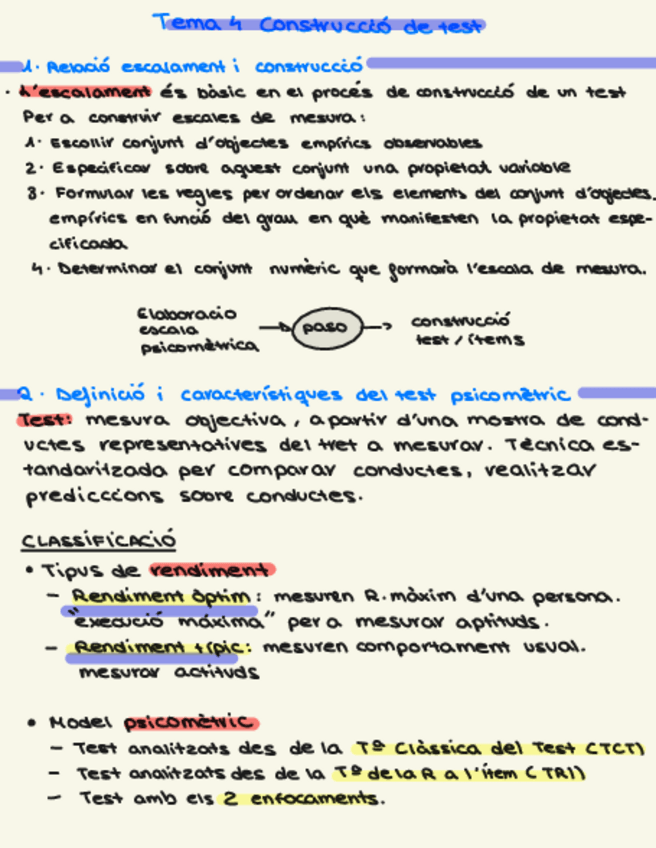 Tema 4 Construcció de test
1. Relació escalament i construcció
· L'escalament és bàsic en el procés de construcció de un test
Per a construir escales de mesura:
1. Escollir conjunt d'objectes empírics observables
2. Especificar sobre aquest conjunt una propietat variable
3. Formular les regles per ordenar els elements del conjunt d'objectes
empírics en funció del grau en què manifesten la propietat espe-
cificada
4. Determinar el conjunt numèric que formarà l'escala de mesura.
Elaboració
escala
psicomètrica → paso → construcció
test / ítems
2. Definició i característiques del test psicomètric
Test: mesura objectiva, a partir d'una mostra de cond-
uctes representatives del tret a mesurar. Tècnica es-
tandaritzada per comparar conductes, realitzar
prediccions sobre conductes.
CLASSIFICACIÓ
• Tipus de rendiment
- Rendiment òptim: mesuren R. màxim d'una persona.
"execució máxima" per a mesurar aptituds.
- Rendiment típic: mesuren comportament usual.
mesurar actituds
• Model psicomètric
- Test analitzats des de la Tª Clàssica del Test (TCT)
- Test analitzats des de la Tª de la R a l'ítem (TRI)
- Test amb els 2 enfocaments.